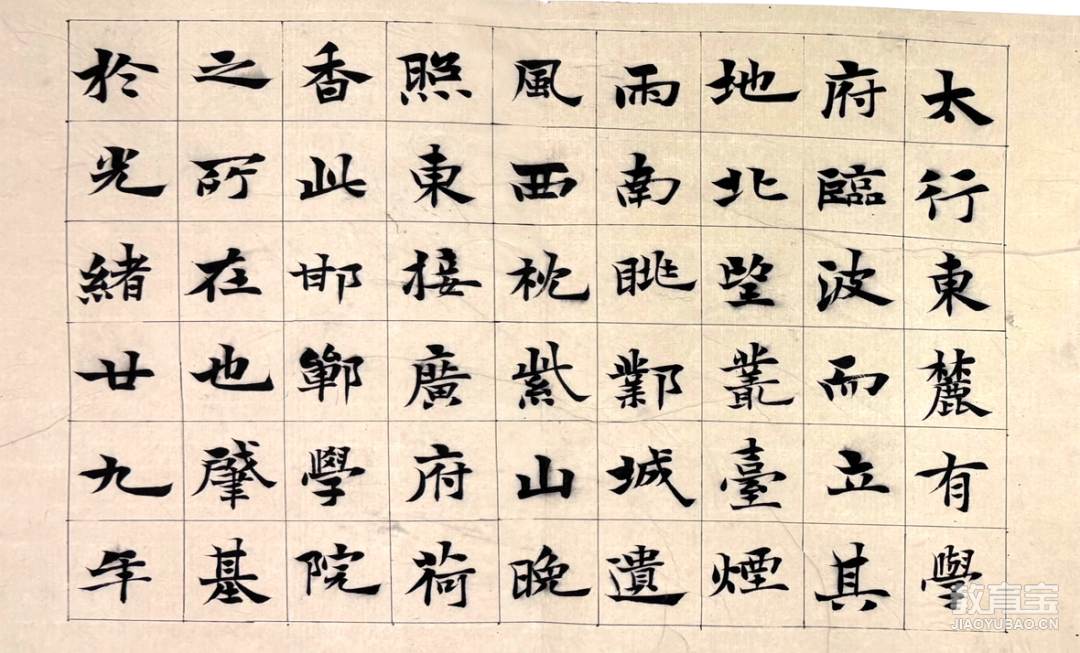 太行東麓有學
府臨波而立其
地北望叢臺煙
雨南眺鄴城遺
風西枕紫山晚
照東接廣府荷
香此邯鄲學院
之所在也肇基
於光緒廿九年
教育宝
JIAOYUBAO.CN